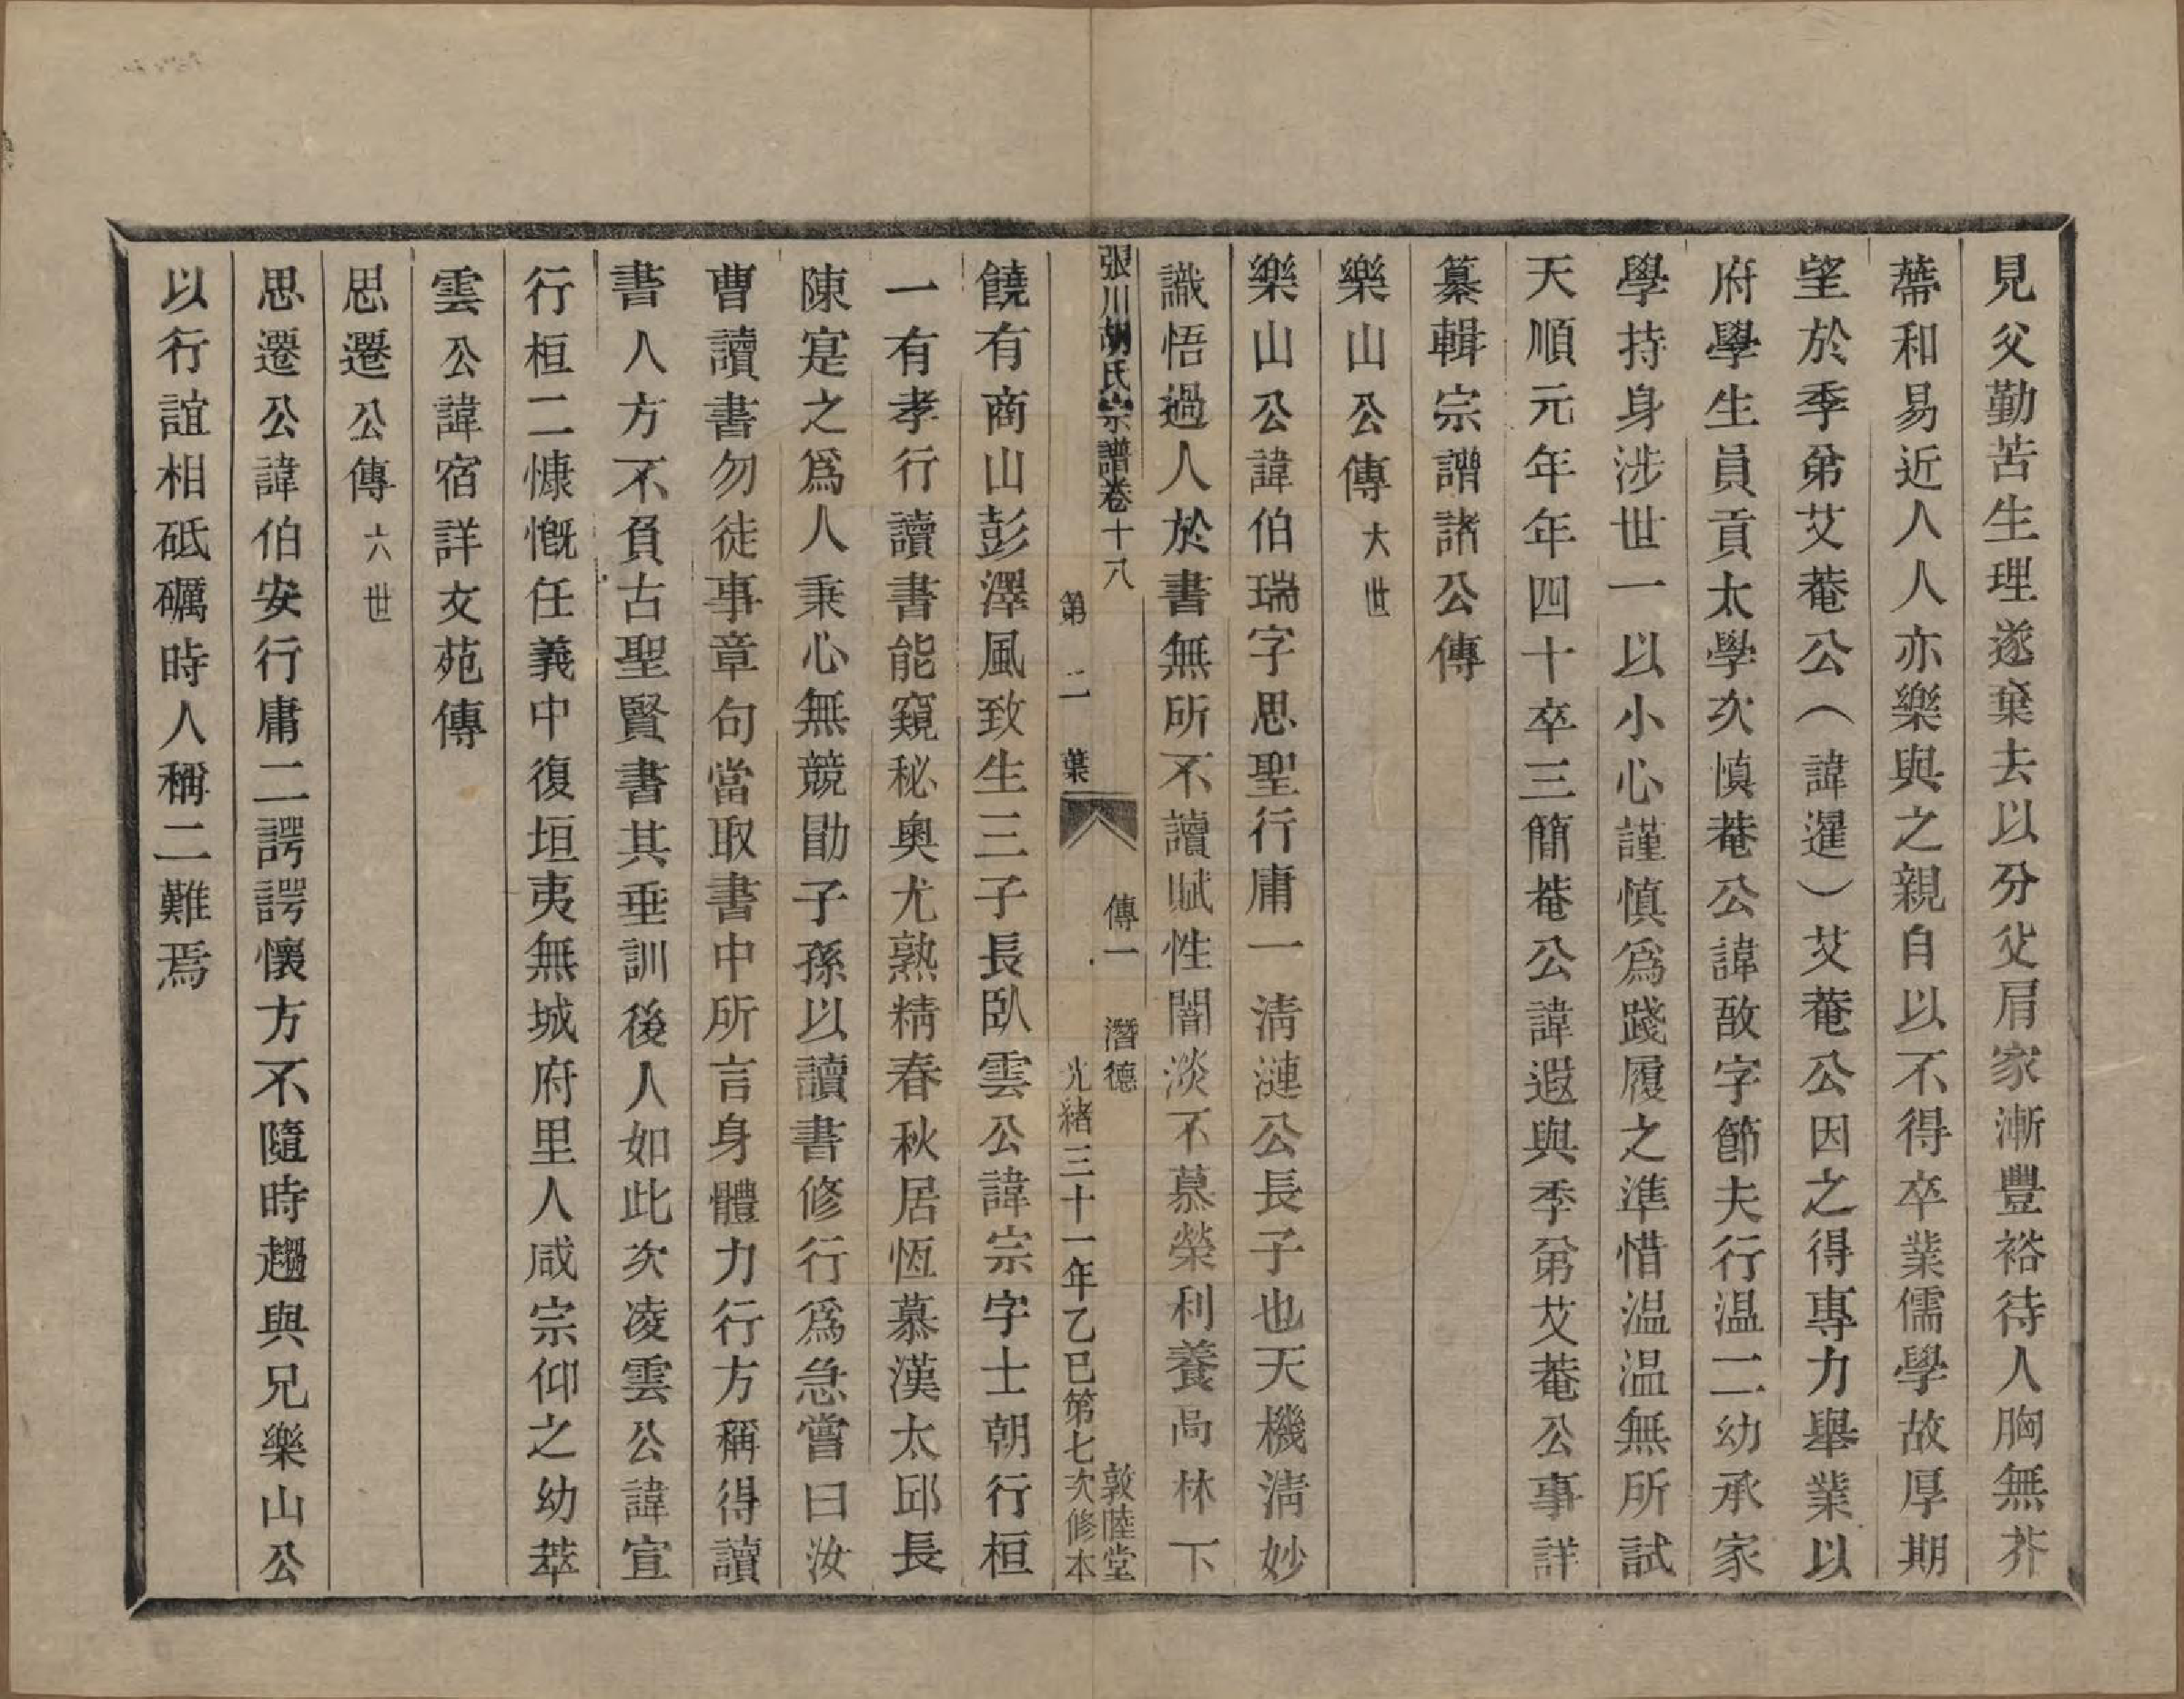 見父勤苦生理遂棄去以分父肩家漸豐裕待人胸無芥
蔕和易近人人亦樂與之親自以不得卒業儒學故厚期
望於季弟艾菴公（諱暹）艾菴公因之得專力舉業以
府學生員貢太學次慎菴公諱敔字節夫行温二幼承家
學持身涉世一以小心謹慎爲踐履之準惜温温無所試
天順元年年四十卒三簡菴公諱遐與季弟艾菴公事詳
纂輯宗譜諸公傳
樂山公傳 六世
樂山公諱伯瑞字思聖行庸一清漣公長子也天機清妙
識悟過人於書無所不讀賦性闇淡不慕榮利養高林下
張川胡氏宗譜卷十八 傳一 潛德 敦睦堂
第二葉 光緒三十一年乙巳第七次修本
饒有商山彭澤風致生三子長臥雲公諱宗字士朝行桓
一有孝行讀書能窺秘奥尤熟精春秋居恆慕漢太邱長
陳寔之爲人秉心無競勖子孫以讀書修行爲急嘗曰汝
曹讀書勿徒事章句當取書中所言身體力行方稱得讀
書人方不負古聖賢書其垂訓後人如此次凌雲公諱宣
行桓二慷慨任義中復垣夷無城府里人咸宗仰之幼萃
雲公諱宿詳文苑傳
思遷公傳 六世
思遷公諱伯安行庸二諤諤懷方不隨時趨與兄樂山公
以行誼相砥礪時人稱二難焉